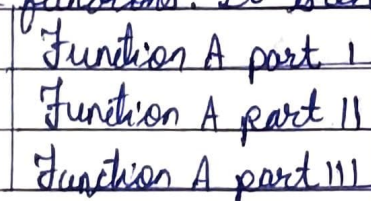 Function A part I
Function A part II
Function A part III